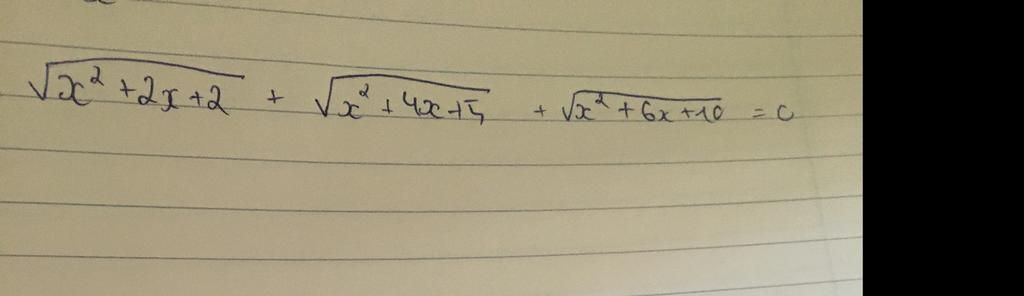 √(x² + 2x + 2) + √(x² + 4x + 5) + √(x² + 6x + 10) = 0